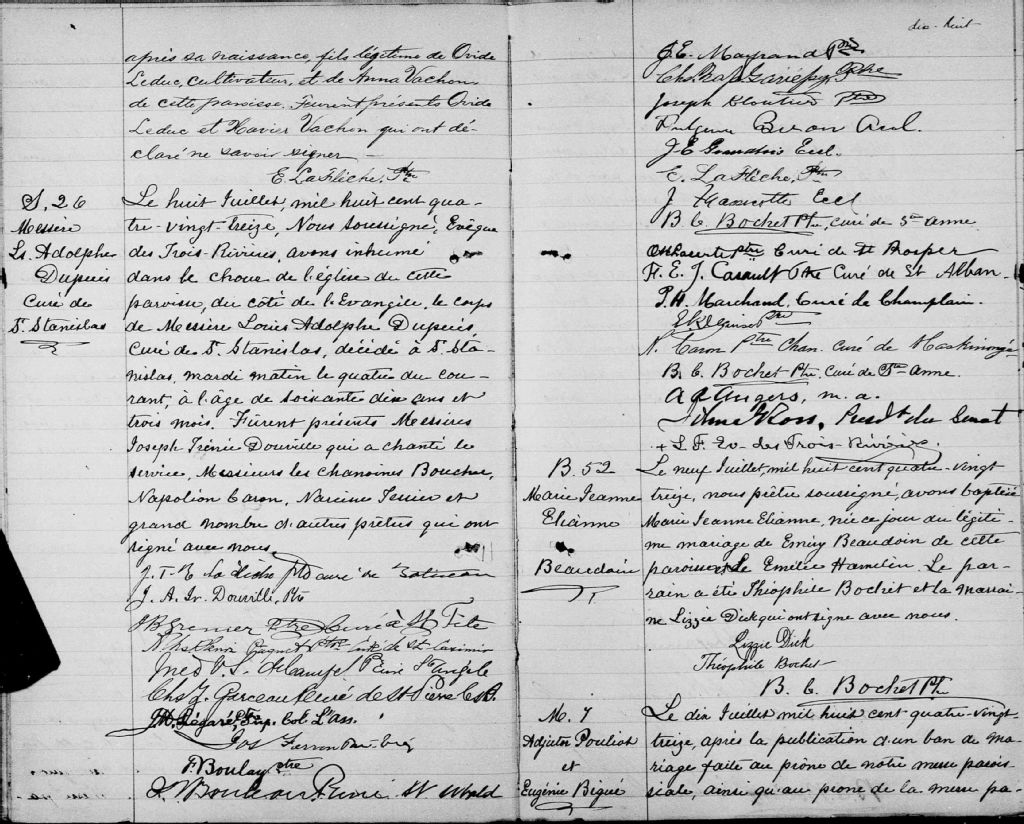 après sa naissance, fils légitime de Ovide
Leduc, cultivateur, et de Anna Vachon
de cette paroisse. Furent présents Ovide
Leduc et Xavier Vachon qui ont dé-
claré ne savoir signer
E. LaFlèche, Ptre
S. 26
Messire
Ls. Adolphe
Dupuis
Curé de
St. Stanislas
Le huit Juillet, mil huit cent qua-
tre-vingt-treize, Nous soussigné, Evêque
des Trois-Rivières, avons inhumé
dans le chœur de l'église de cette
paroisse, du côté de l'Evangile, le corps
de Messire Louis Adolphe Dupuis,
curé de St. Stanislas, décédé à St. Sta-
nislas, mardi matin le quatre du cou-
rant, à l'âge de soixante deux ans et
trois mois. Furent présents Messires
Joseph Irénée Douville qui a chanté le
service, Messieurs les chanoines Boucher,
Napoléon Caron, Narcisse Tessier et
grand nombre d'autres prêtres qui ont
signé avec nous.
curé de
J. A. Ir. Douville, Ptre
Grenier Ptre Curé à St Tite
Ptre curé de St. Casimir
Ptre Ste Angèle
Chs J. Garceau curé de St Pierre
Sup. Col. L'Ass.
Jos
F. Boulay ptre
Ptre
dix-huit
J. E. Mayrand Ptre
Ptre
Joseph Cloutier Ptre
Buron Eccl.
J E Eccl.
E. LaFlèche, Ptre
J Eccl
B. C. Bochet Ptre, curé de Ste Anne
ptre Curé de St Prosper
H. E. J. Casault Ptre Curé de St Alban
P. H. Marchand, Curé de Champlain.
ptre
N. Caron Ptre Chan. curé de Maskinongé
B. C. Bochet Ptre. Curé de Ste Anne.
A R Angers, m. a.
Ross, Presdt du Senat
+ L. F. Ev. des Trois-Rivières.
B. 52
Marie Jeanne
Elianne
Beaudoin
Le neuf Juillet mil huit cent quatre-vingt
treize, nous prêtre soussigné, avons baptisé
Marie Jeanne Elianne, née ce jour du légiti-
me mariage de Emery Beaudoin de cette
paroisse et de Emilie Hamelin. Le par-
rain a été Théophile Bochet et la marrai-
ne Lizzie Dick qui ont signé avec nous.
Lizzie Dick
Théophile Bochet
B. C. Bochet Ptre
M. 7
Adjutor Pouliot
et
Eugénie Bigué
Le dix Juillet mil huit cent quatre-vingt-
treize, après la publication d'un ban de ma-
riage faite au prône de notre messe parois-
siale, ainsi qu'au prone de la messe pa-